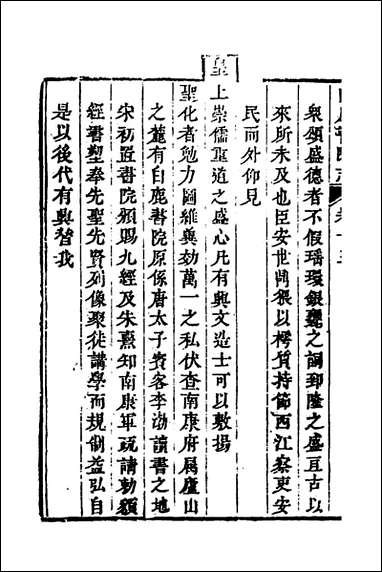 衆頌盛德者不假璠璵銀甕之詞郅隆之盛亘古以
來所未及也臣安世猥以樗質持節西江察吏安
民而外仰見
皇上崇儒重道之盛心凡有興文造士可以敷揚
聖化者勉力圖維冀効萬一之私伏查南康府屬廬山
之麓有白鹿書院原係唐太子賓客李渤讀書之地
宋初置書院頒賜九經及朱熹知南康軍疏請勅額
經書塑奉先聖先賢列像聚徒講學而規制益弘自
是以後代有興替我